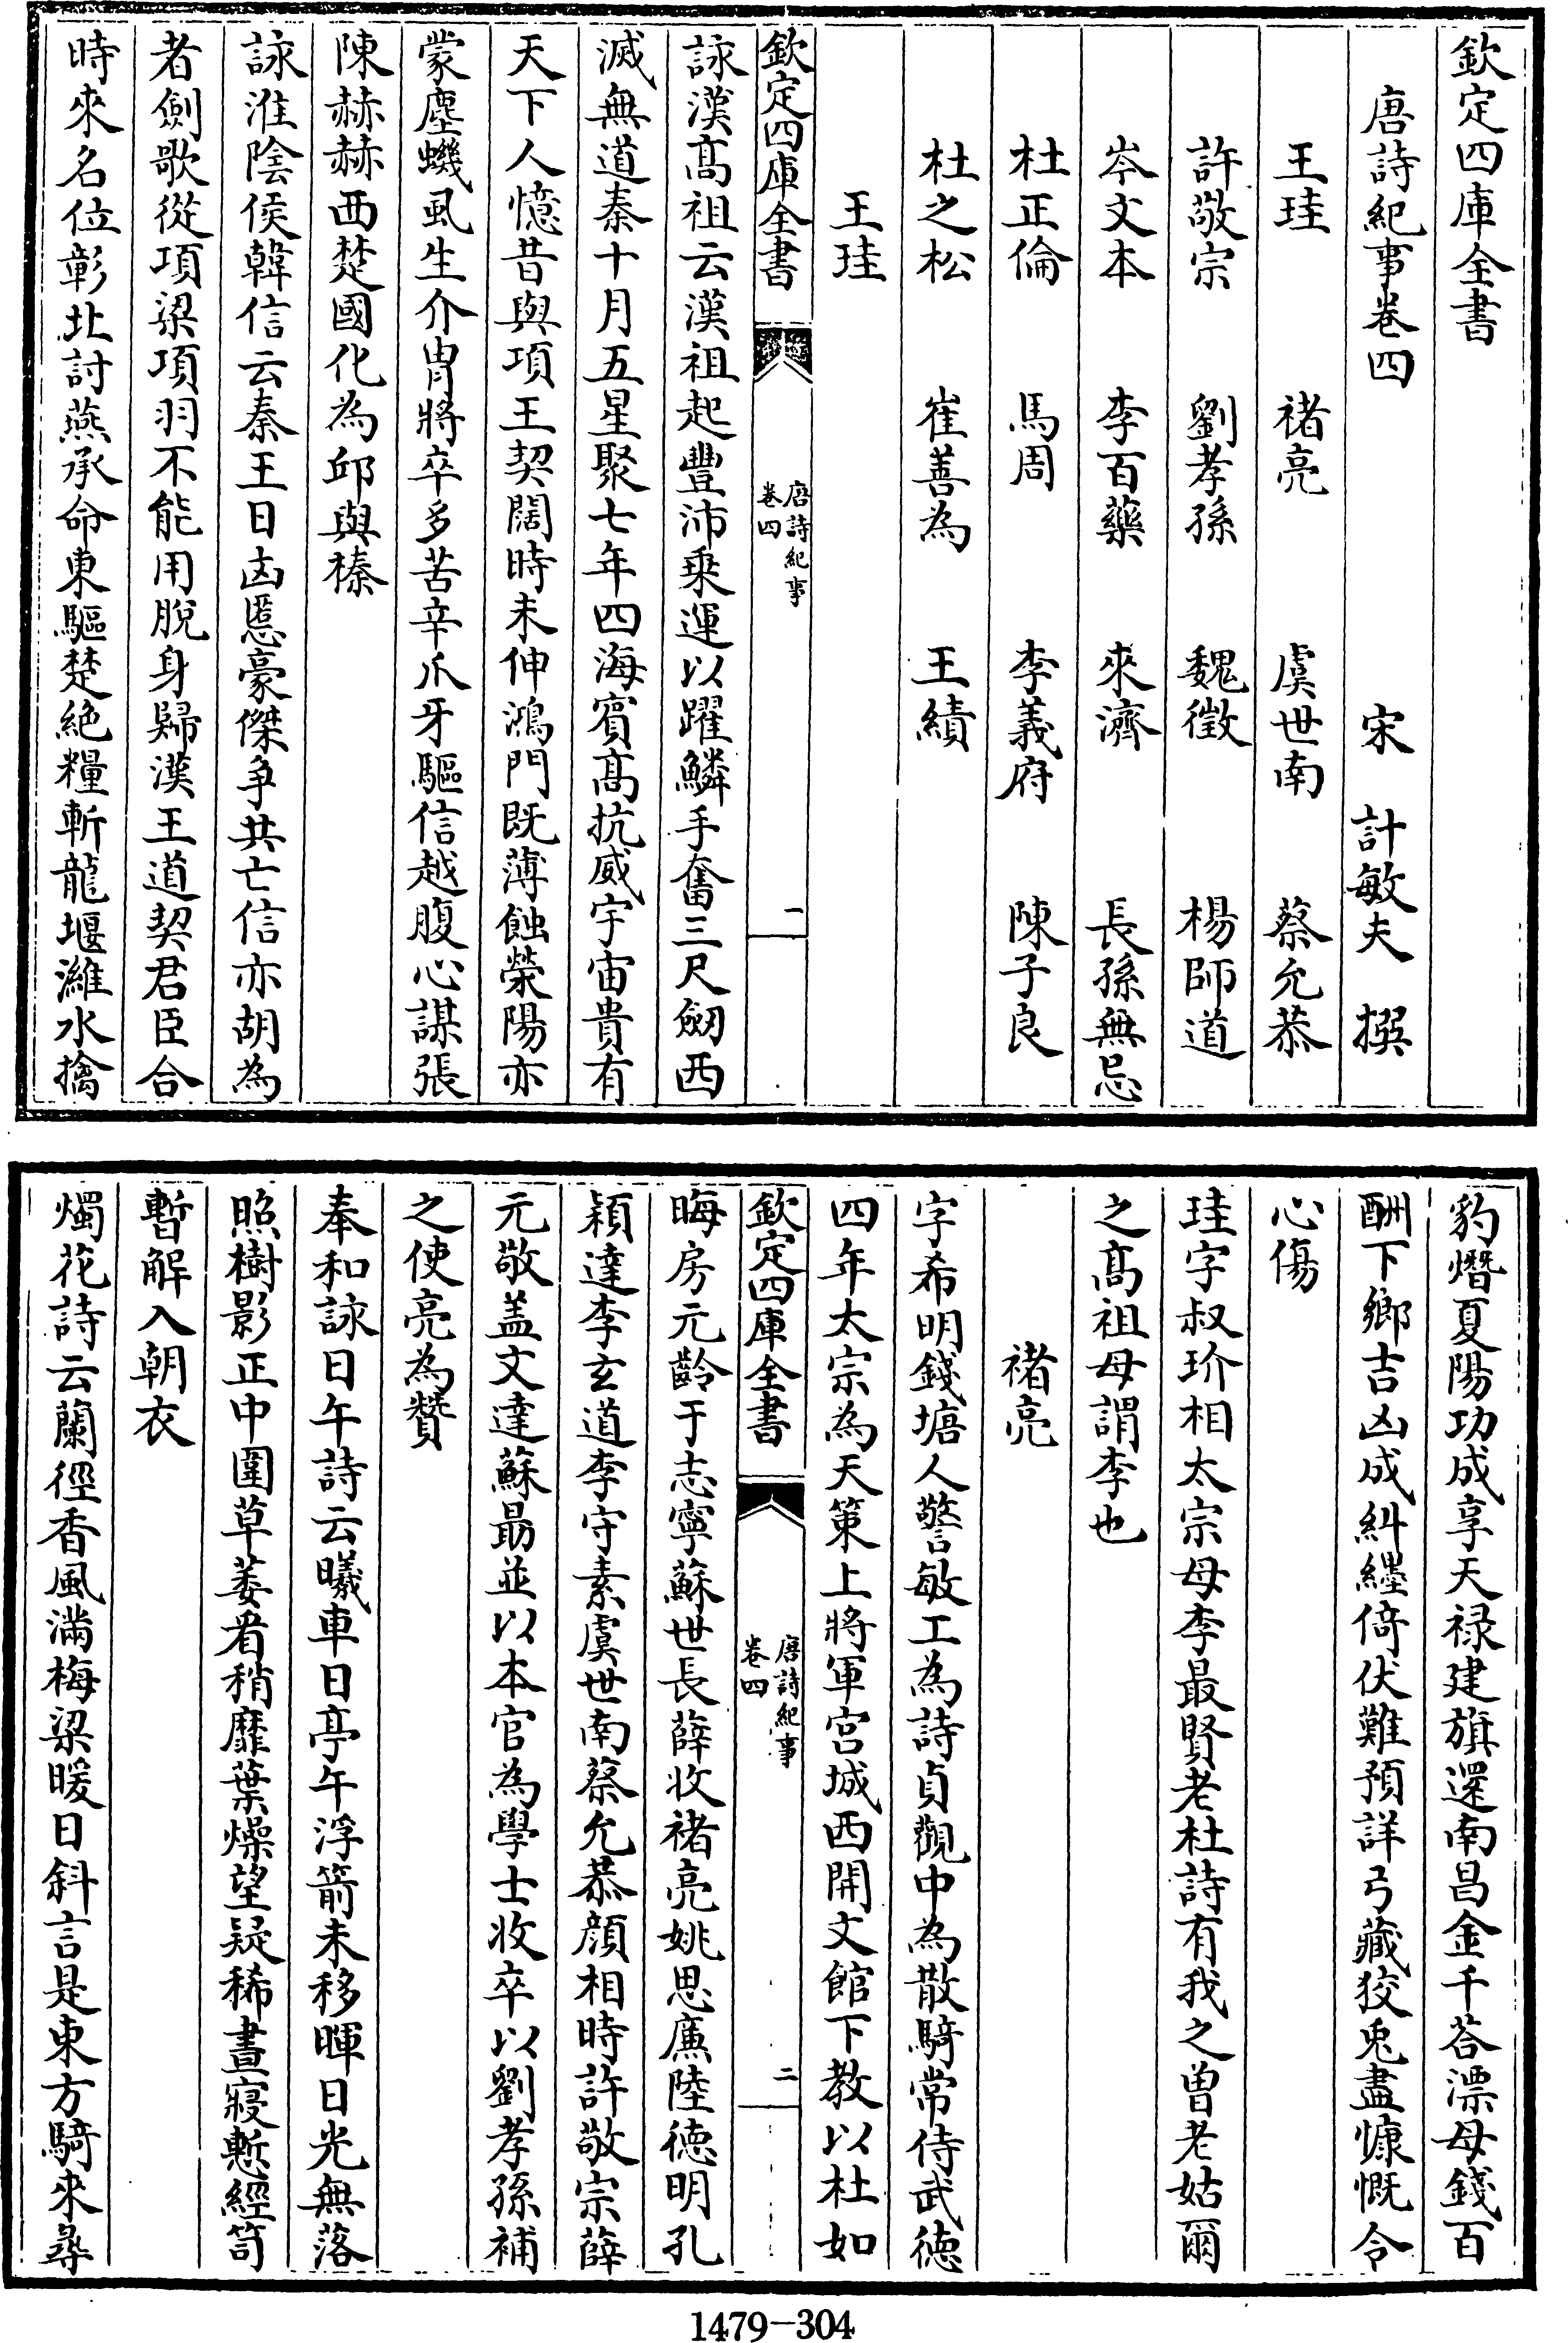 欽定四庫全書
唐詩紀事卷四
宋 計敏夫 撰
王珪 褚亮 虞世南 蔡允恭
許敬宗 劉孝孫 魏徵 楊師道
岑文本 李百藥 來濟 長孫無忌
杜正倫 馬周 李義府 陳子良
杜之松 崔善為 王績
王珪
欽定四庫全書 唐詩紀事 卷四 一
詠漢髙祖云漢祖起豐沛乗運以躍鱗手奮三尺劒西
滅無道秦十月五星聚七年四海賓髙抗威宇宙貴有
天下人憶昔與項王契闊時未伸鴻門既薄蝕滎陽亦
蒙塵蟣虱生介胄將卒多苦辛爪牙驅信越腹心謀張
陳赫赫西楚國化為邱與榛
詠淮陰侯韓信云秦王日凶慝豪傑爭共亡信亦胡為
者劍歌從項梁項羽不能用脫身歸漢王道契君臣合
時來名位彰北討燕承命東驅楚絶糧斬龍堰濰水擒
豹熸夏陽功成享天禄建旗還南昌金千荅漂母錢百
酬下鄉吉凶成糾纒倚伏難預詳弓藏狡兎盡慷慨令
心傷
珪字叔玠相太宗母李最賢老杜詩有我之曽老姑爾
之髙祖母謂李也
褚亮
字希明錢塘人警敏工為詩貞觀中為散騎常侍武徳
四年太宗為天策上將軍宫城西開文館下教以杜如
欽定四庫全書 唐詩紀事 卷四 二
晦房元齡于志寧蘇世長薛收褚亮姚思廉陸德明孔
穎達李玄道李守素虞世南蔡允恭顔相時許敬宗薛
元敬盖文達蘇勗並以本官為學士收卒以劉孝孫補
之使亮為贊
奉和詠日午詩云曦車日亭午浮箭未移暉日光無落
照樹影正中圍草萎看稍靡葉燥望疑稀晝寢慙經笥
暫解入朝衣
燭花詩云蘭徑香風滿梅梁暖日斜言是東方騎來尋
1479-304